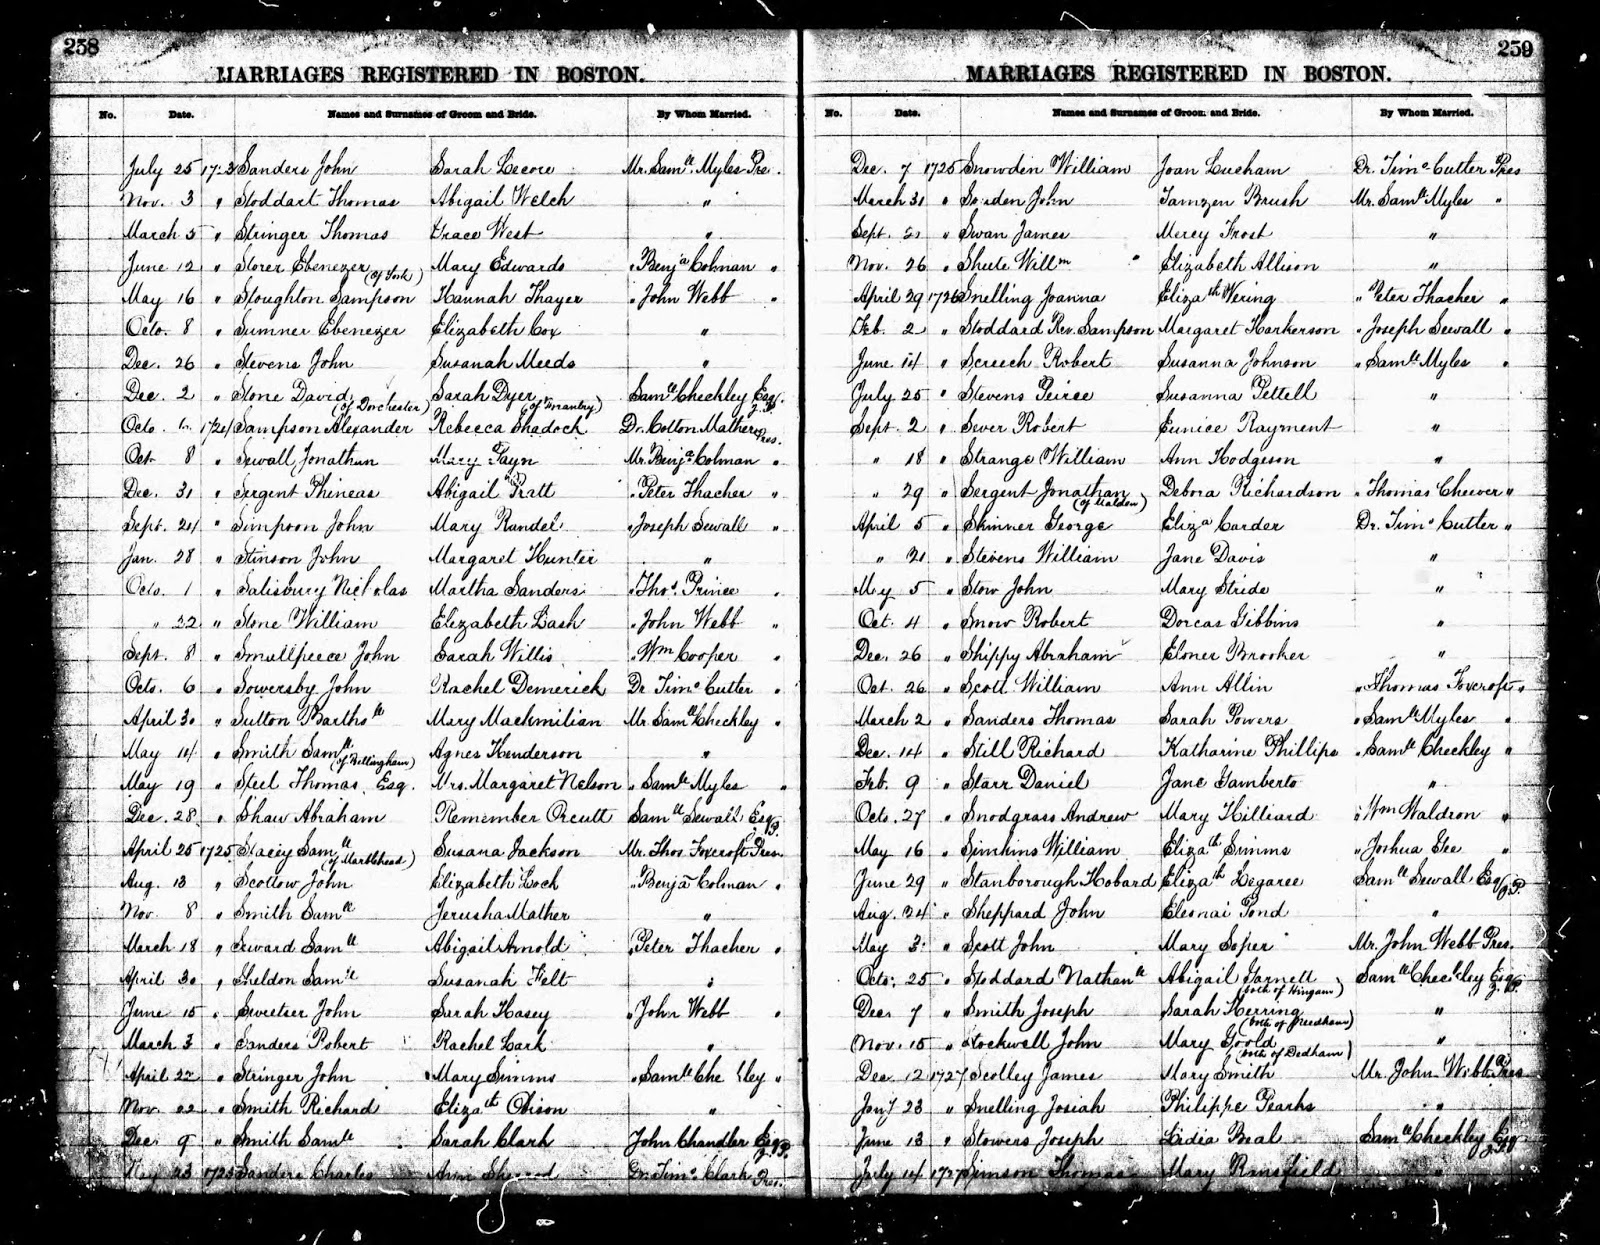 258
MARRIAGES REGISTERED IN BOSTON.
No. Date. Names and Surnames of Groom and Bride. By Whom Married.
July 25 Sanders John Sarah Mr. Saml. Myles Pre.
Nov. 3 " Stoddart Thomas Abigail Welch "
March 5 " Stringer Thomas Grace West "
June 12 " Storer Ebenezer (of York) Mary Edwards " Benja Colman "
May 16 " Stoughton Sampson Hannah Thayer " John Webb "
Octo. 8 " Sumner Ebenezer Elizabeth Cox "
Dec. 26 " Stevens John Susanah Meeds "
Dec. 2 " Stone David (of Dorchester) Sarah Dyer Saml Checkley Esq. J.P.
Octo. 1724 Sampson Alexander Rebecca Shadock Dr. Cotton Mather Pres.
Oct. 8 " Sewall Jonathan Mary Payn Mr. Benja Colman "
Dec. 31 " Sergent Phineas Abigail Pratt " Peter Thacher "
Sept. 24 " Simpson John Mary Randel " Joseph Sewall "
Jan. 28 " Stinson John Margaret Hunter "
Octo. 1 " Salisbury Nicholas Martha Sanders " Thos. Prince "
" 22 " Stone William Elizabeth Lash " John Webb "
Sept. 8 " Smallpeece John Sarah Willis " Wm Cooper "
Octo. 6 " Sowersby John Rachel Demerick Dr. Timo Cutler "
April 30 " Sutton Mary Mackmilian Mr. Saml Checkley "
May 14 " Smith Saml (of Bellingham) Agnes Henderson "
May 19 " Steel Thomas, Esq. Mrs. Margaret Nelson " Saml Myles "
Dec. 28 " Shaw Abraham Remember Orcutt Saml Sewall Esq J.P.
April 25 1725 Stacey Saml (of Marblehead) Susana Jackson Mr. Thos Foxcroft Pres.
Aug. 13 " Scottow John Elizabeth Lock " Benja Colman "
Nov. 8 " Smith Saml Jerusha Mather "
March 18 " Seward Saml Abigail Arnold " Peter Thacher "
April 30 " Sheldon Saml Susanah Felt "
June 15 " Sweetser John Sarah Kasey " John Webb "
March 3 " Sanders Robert Rachel Lark "
April 22 " Stringer John Mary Simms " Saml Checkley "
Nov. 22 " Smith Richard Elizath Obison "
Dec. 9 " Smith Saml Sarah Clark John Chandler Esq J.P.
May 23 1725 Sanders Charles Ann Dr. Timo Clark Pres.
259
MARRIAGES REGISTERED IN BOSTON.
No. Date. Names and Surnames of Groom and Bride. By Whom Married.
Dec. 7 1725 Snowden William Joan Lucham Dr. Timo Cutler Pres
March 31 " John Tamzen Brush Mr. Saml Myles "
Sept. 21 " Swan James Mercy Frost "
Nov. 26 " Shute Willm Elizabeth Allison "
April 29 1726 Snelling Joanna Elizath Wering " Peter Thacher "
Feb. 2 " Stoddard Rev. Sampson Margaret Harkerson " Joseph Sewall "
June 14 " Screech Robert Susanna Johnson " Saml Myles "
July 25 " Stevens Peirce Susanna Pettell "
Sept. 2 " Sever Robert Eunice Rayment "
" 18 " Strange William Ann Hodgeson "
" 29 " Sergent Jonathan (of Maldon) Debora Richardson " Thomas Cheever "
April 5 " Skinner George Eliza Carder Dr. Timo Cutler "
" 21 " Stevens William Jane Davis "
May 5 " Stow John Mary Stride "
Oct. 4 " Snow Robert Dorcas Gibbins "
Dec. 26 " Shippy Abraham Eloner Brooker "
Oct. 26 " Scott William Ann Allin " Thomas Foxcroft "
March 2 " Sanders Thomas Sarah Powers " Saml Myles "
Dec. 14 " Still Richard Katharine Phillips " Saml Checkley "
Feb. 9 " Starr Daniel Jane Gamberto "
Octo. 27 " Snodgrass Andrew Mary Hilliard " Wm Waldron "
May 16 " Simkins William Elizath Simms " Joshua Gee "
June 29 " Stanborough Hobard Elizath Legaree Saml Sewall Esq J.P.
Aug. 24 " Sheppard John Elesnai Pond "
May 3 " Scott John Mary Soper Mr. John Webb Pres.
Octo. 25 " Stoddard Nathanl Abigail Garnett (both of Hingam) Saml Checkley Esq J.P.
Dec. 7 " Smith Joseph Sarah Herring "
Nov. 15 " Stockwell John Mary Goold (both of Dedham) "
Dec. 12 1727 Scolley James Mary Smith Mr. John Webb Pres
Jany 23 " Snelling Josiah Philippe Pearks "
June 13 " Stowers Joseph Lidia Beal Saml Checkley Esq J.P.
July 14 1727 Simson Thomas Mary Rinsfield "